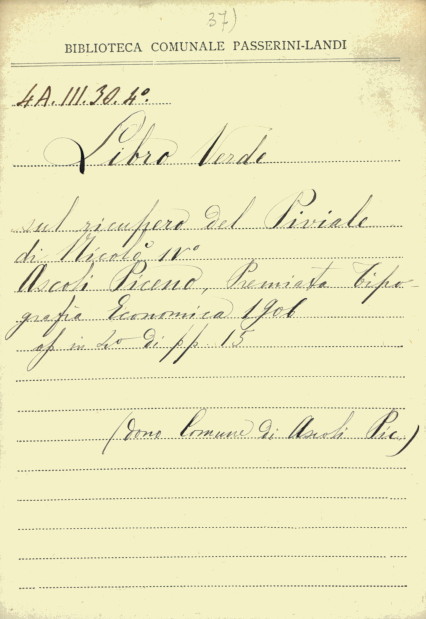 37)
BIBLIOTECA COMUNALE PASSERINI-LANDI
4A.III.30.4°.
Libro Verde
sul ricupero del Piviale
di Nicolò IV°
Ascoli Piceno, Premiata Tipo-
grafia Economica 1906
op in 4° di pp. 15
(dono Comune di Ascoli Pic.)